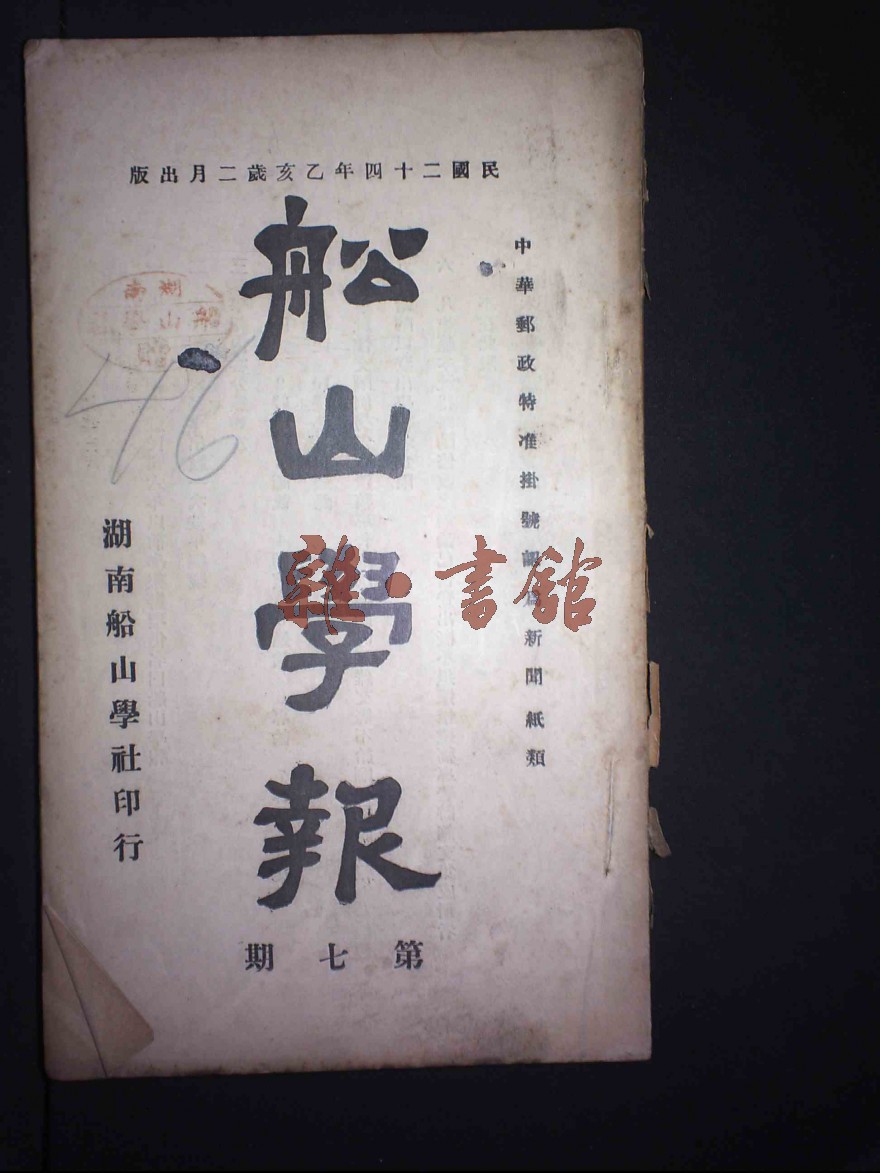 民國二十四年乙亥歲二月出版
中華郵政特准掛號認爲新聞紙類
船山學報
第七期
湖南船山學社印行
湖南
船山學
46
雜·書館